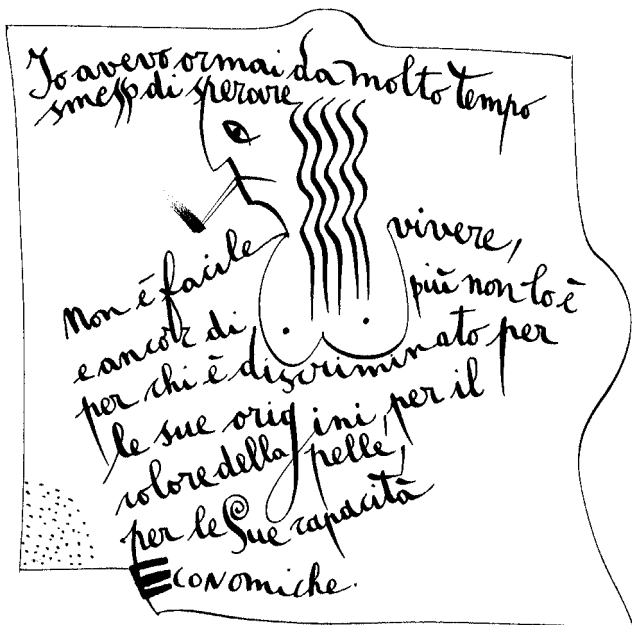 Io avevo ormai da molto tempo
smesso di sperare
Non è facile vivere,
e ancor di più non lo è
per chi è discriminato per
le sue origini, per il
colore della pelle,
per le Sue capacità
Economiche.